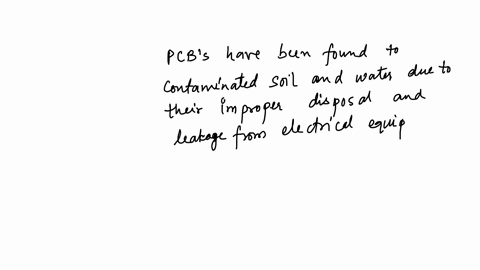 PCB's have been found to
contaminated soil and water due to
their improper disposal and
leakage from electrical equip